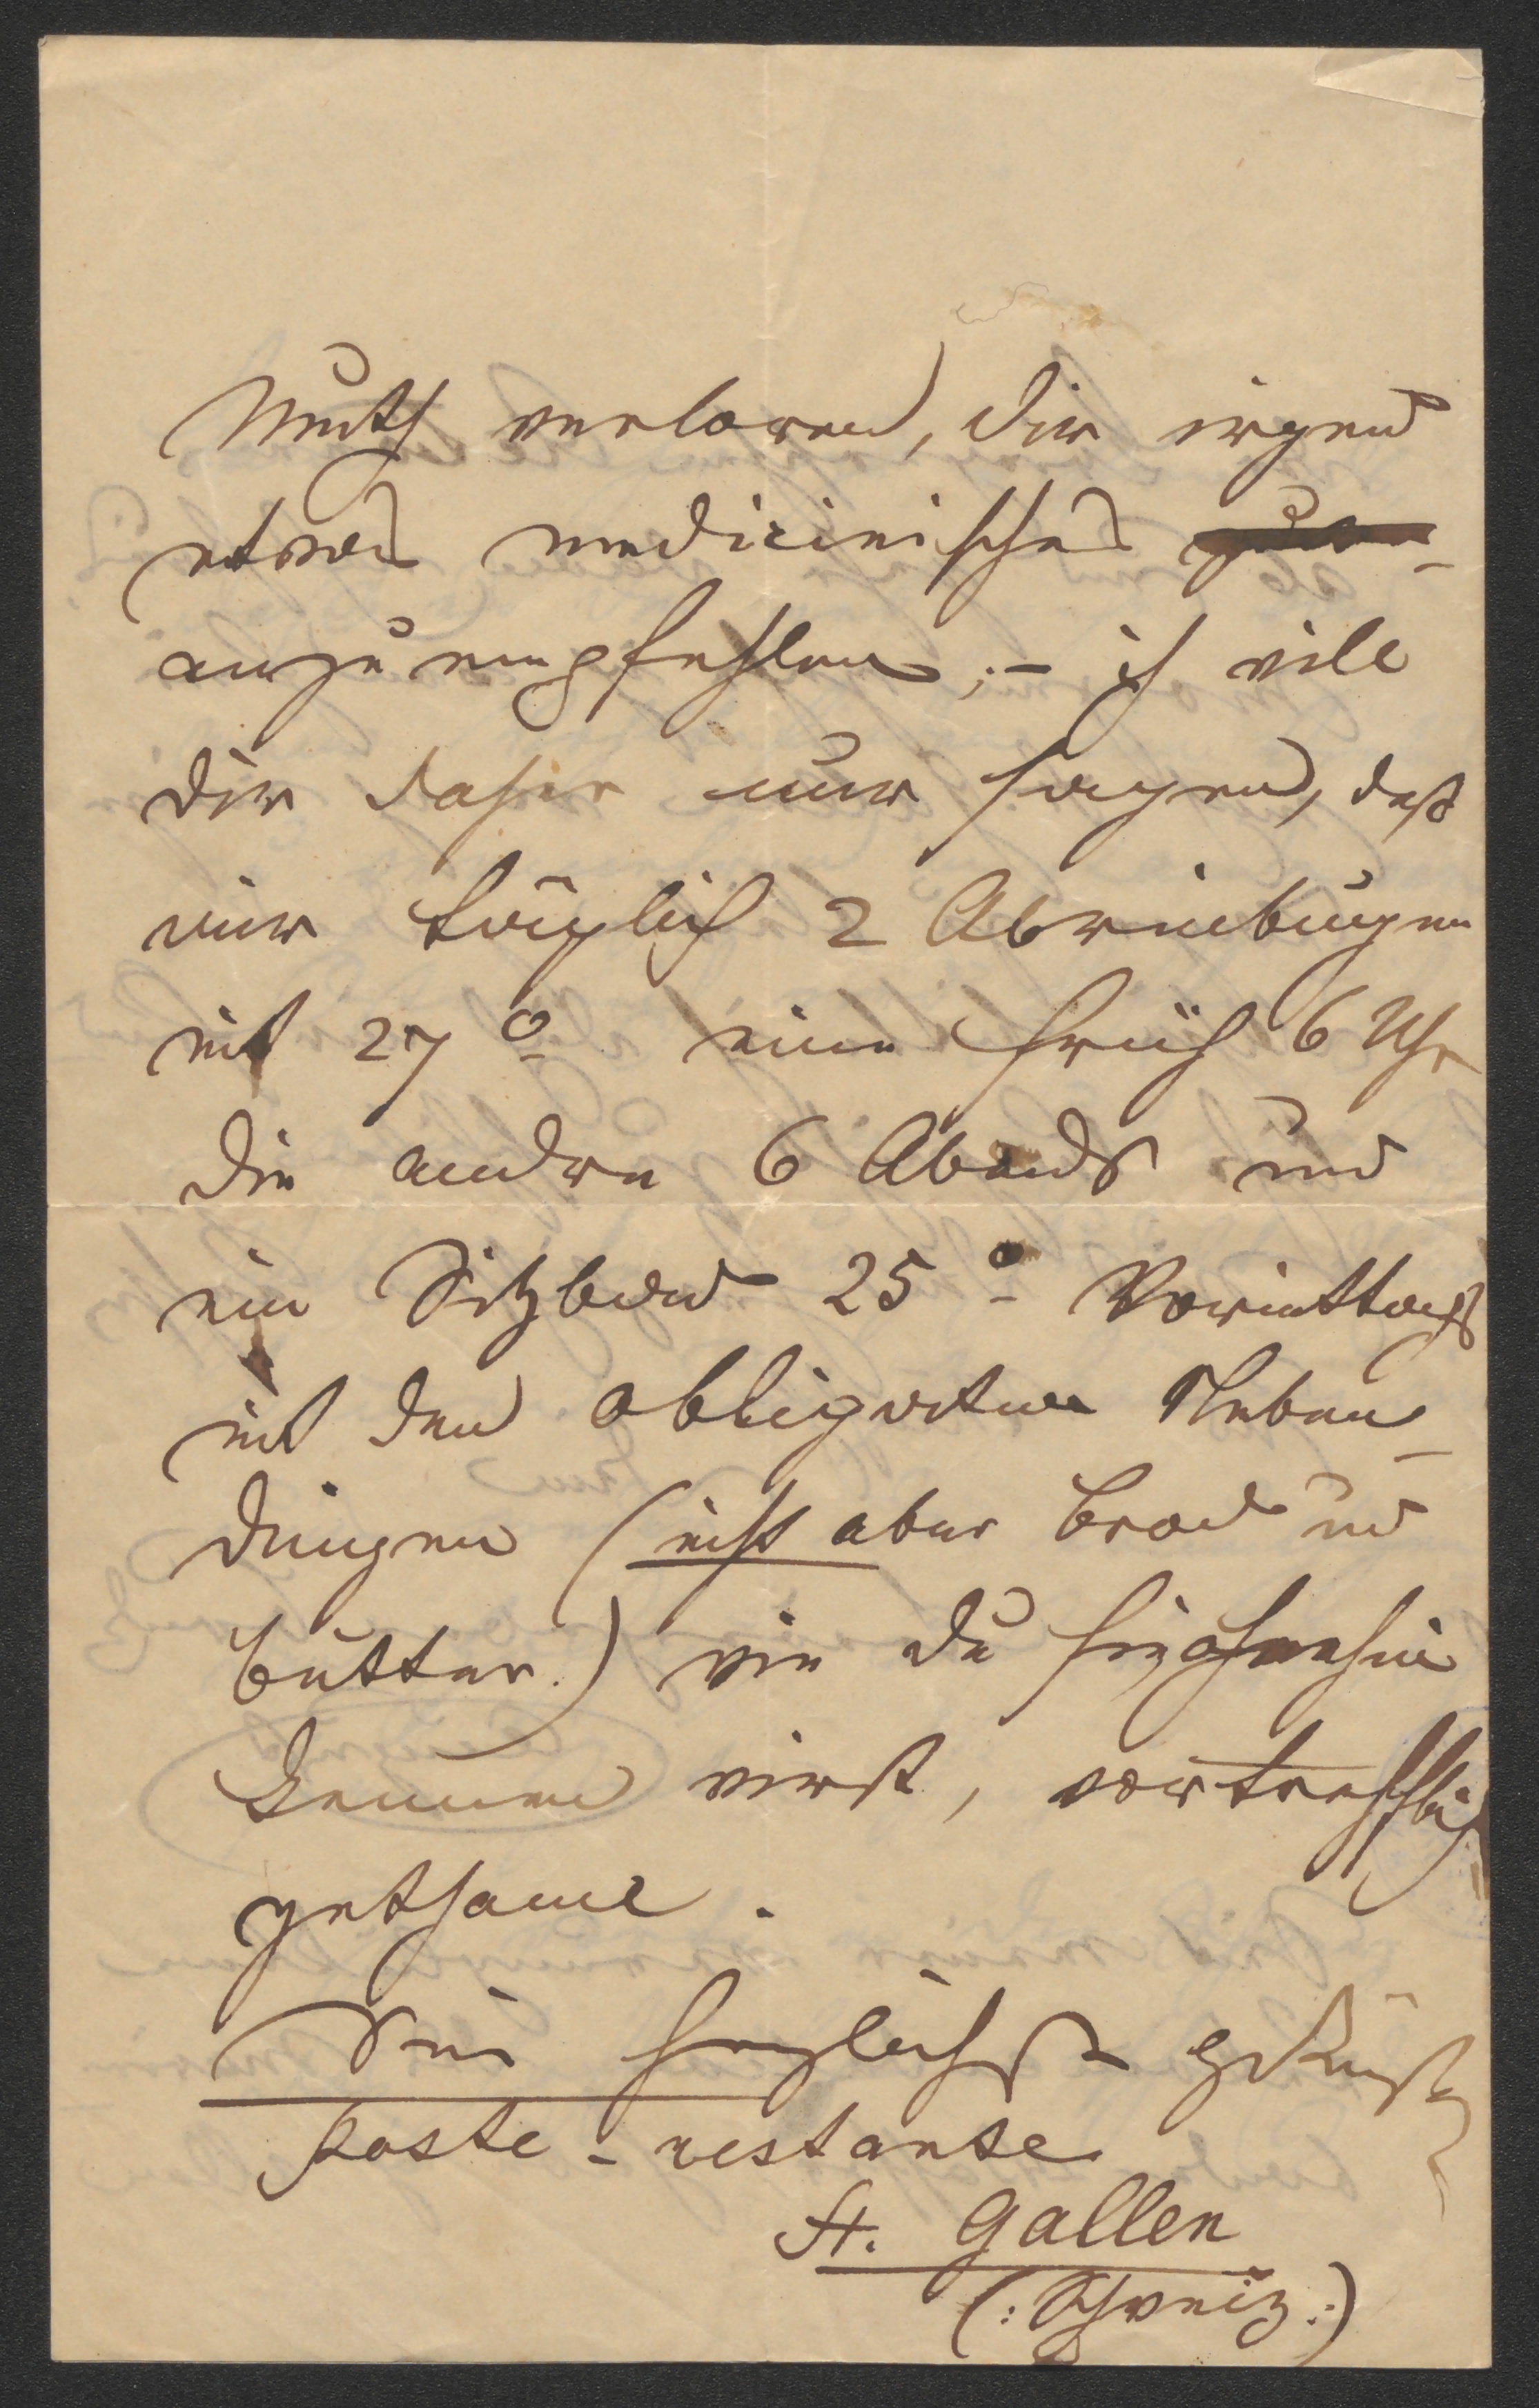 Muth verloren, dir irgend
etwas medicinisches
anzuempfehlen; – ich will
dir daher nur sagen, daß
mir täglich 2 Abreibungen
mit 27° eine früh 6 Uhr
die andre 6 Abends und
ein Sitzbad 25° Vormittags
mit den obligaten Neben-
dingen (nicht aber Brod und
Butter.) wie du
kennen wirst, vortrefflich
gethan.
Sei herzlichst geküßt
poste-restante
St. Gallen
(: Schweiz :)